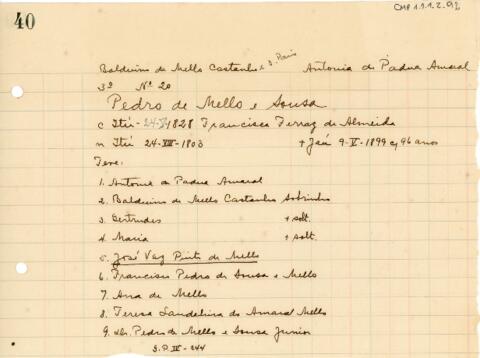 40
CMP 1.1.1.2.92
Balduino de Mello Castanho e S. Paio Antonia de Padua Amaral
3º Nº 20
Pedro de Mello e Sousa
c Itú 1828 Francisca Ferraz de Almeida
n Itú 24-VIII-1803 + Jaú 9-V-1899 c/ 96 anos
Teve:
1. Antonio de Padua Amaral
2. Balduino de Mello Castanho Sobrinho
3. Gertrudes + solt.
4. Maria + solt.
5. José Vaz Pinto de Mello
6. Francisco Pedro de Sousa e Mello
7. Ana de Mello
8. Teresa Landelina do Amaral Mello
9. Dr. Pedro de Mello e Sousa Junior
S.P. IV-244